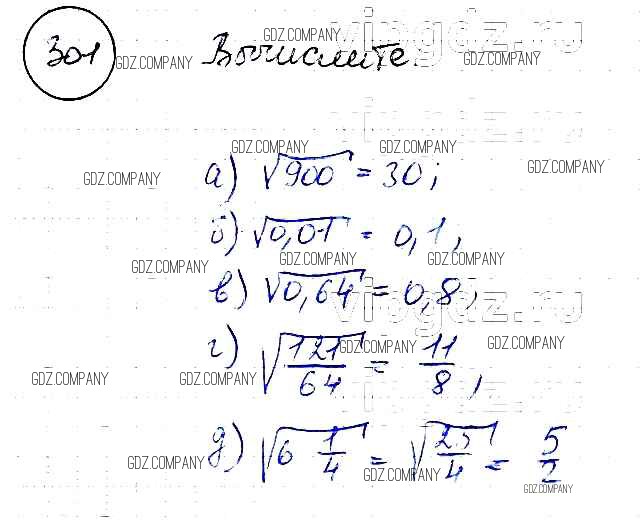 vipgdz.ru
301 GDZ.COMPANY Вычислите. GDZ.COMPANY
vipgdz.ru
GDZ.COMPANY GDZ.COMPANY
GDZ.COMPANY а) √900 = 30; GDZ.COMPANY
б) √0,01 = 0,1,
GDZ.COMPANY GDZ.COMPANY GDZ.COMPANY
в) √0,64 = 0,8,
vipgdz.ru
г) √121/64 = 11/8, GDZ.COMPANY GDZ.COMPANY
GDZ.COMPANY GDZ.COMPANY GDZ.COMPANY
vipgdz.ru
д) √6 1/4 = √25/4 = 5/2
GDZ.COMPANY GDZ.COMPANY GDZ.COMPANY